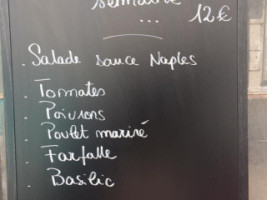 semaine
... 12€
. Salade sauce Naples
. Tomates
. Poivrons
. Poulet mariné
. Farfalle
. Basilic